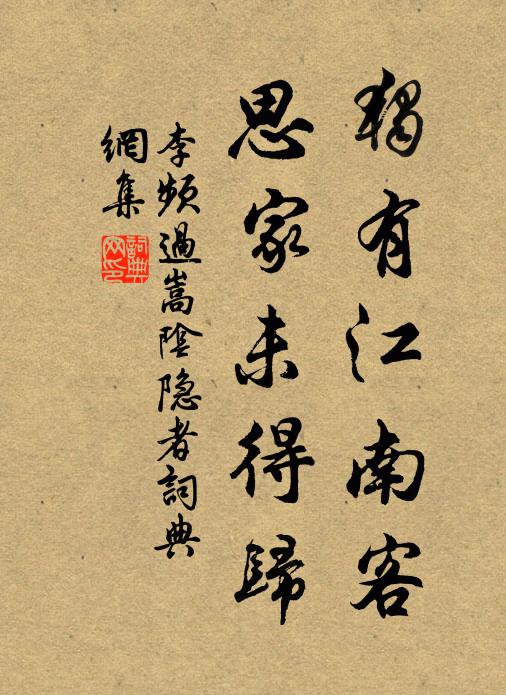 獨有江南客
思家未得歸
李頻過嵩陰隐者詞典
網集
詞典
网印